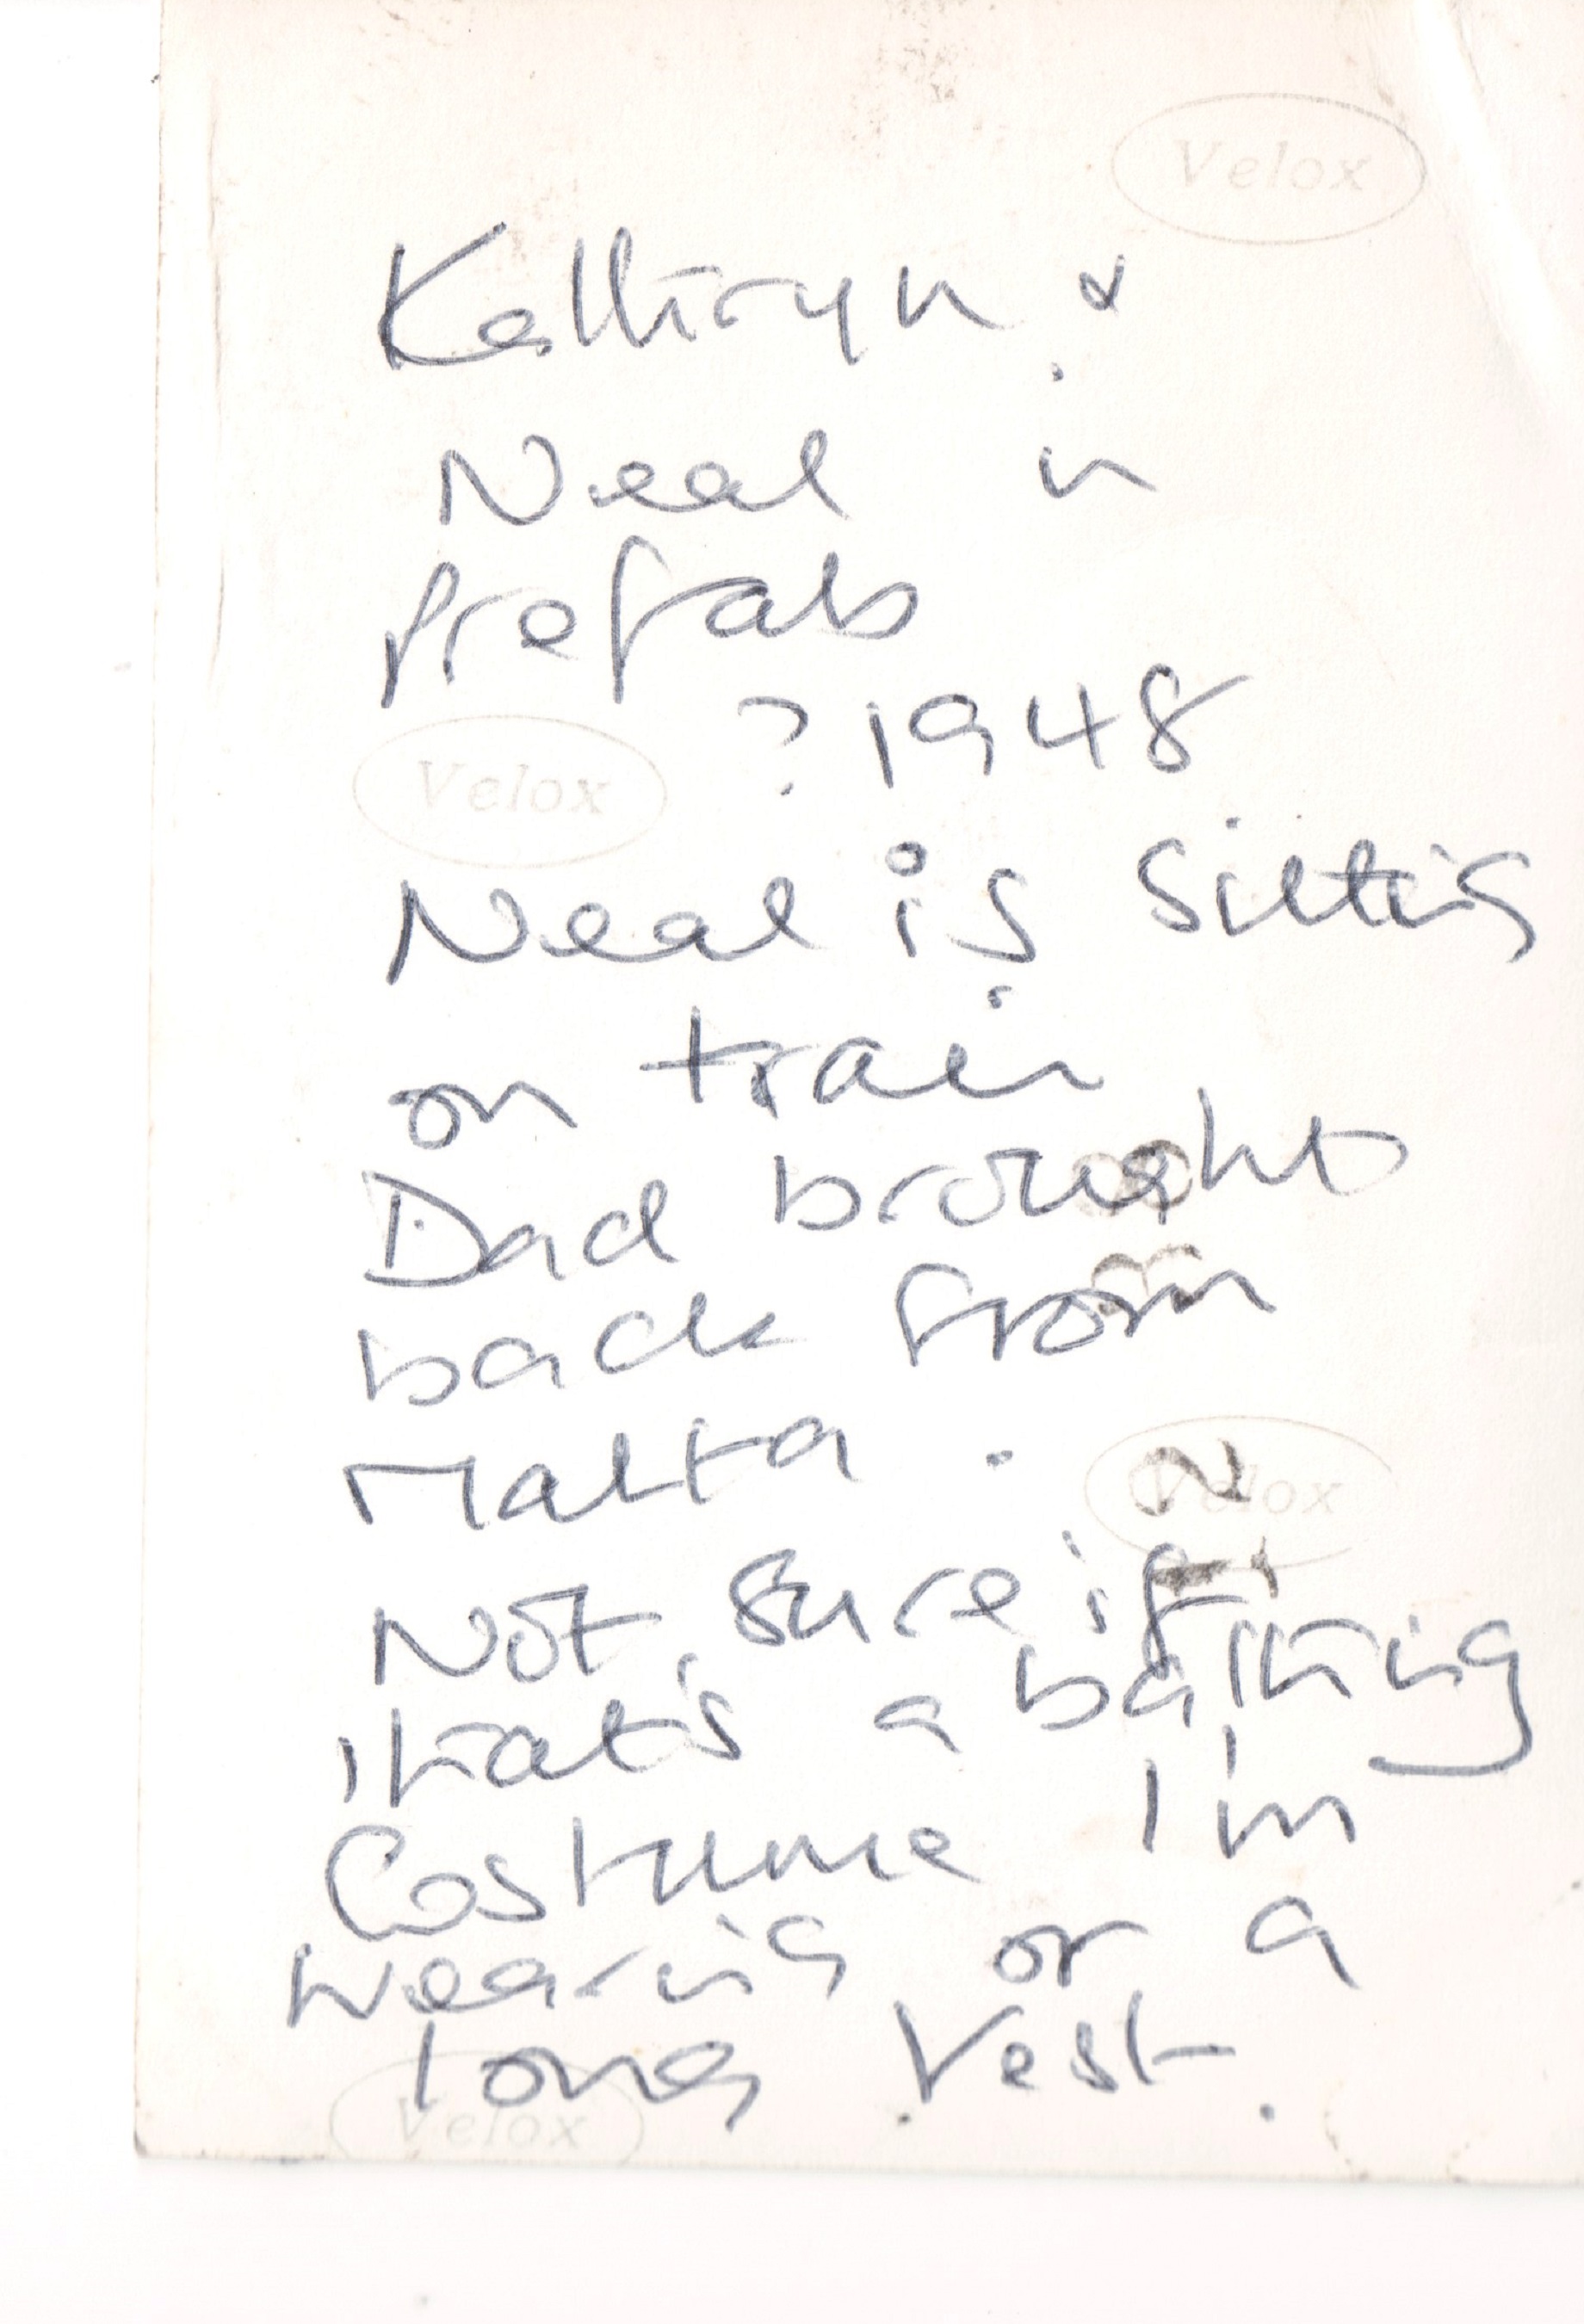 Velox
Kathryn &
Neal in
prefab
? 1948
Velox
Neal is sitting
on train
Dad brought
back from
Malta.
Velox
Not sure if
that's a bathing
Costume I'm
wearing or a
long Vest.
Velox